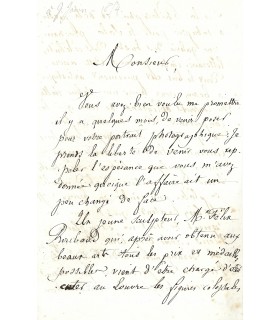 Monsieur,
Vous avez bien voulu me promettre
il y a quelques mois, de venir poser
pour votre portrait photographique. Je
prends la liberté de venir vous rap-
peler l'espérance que vous m'avez
donnée quoique l'affaire ait un
peu changé de face.
Un jeune sculpteur, Mr Félix
qui, après avoir obtenu aux
beaux arts tous les prix et médailles
possibles, vient d'être chargé d'exé-
cuter au Louvre les figures colossales